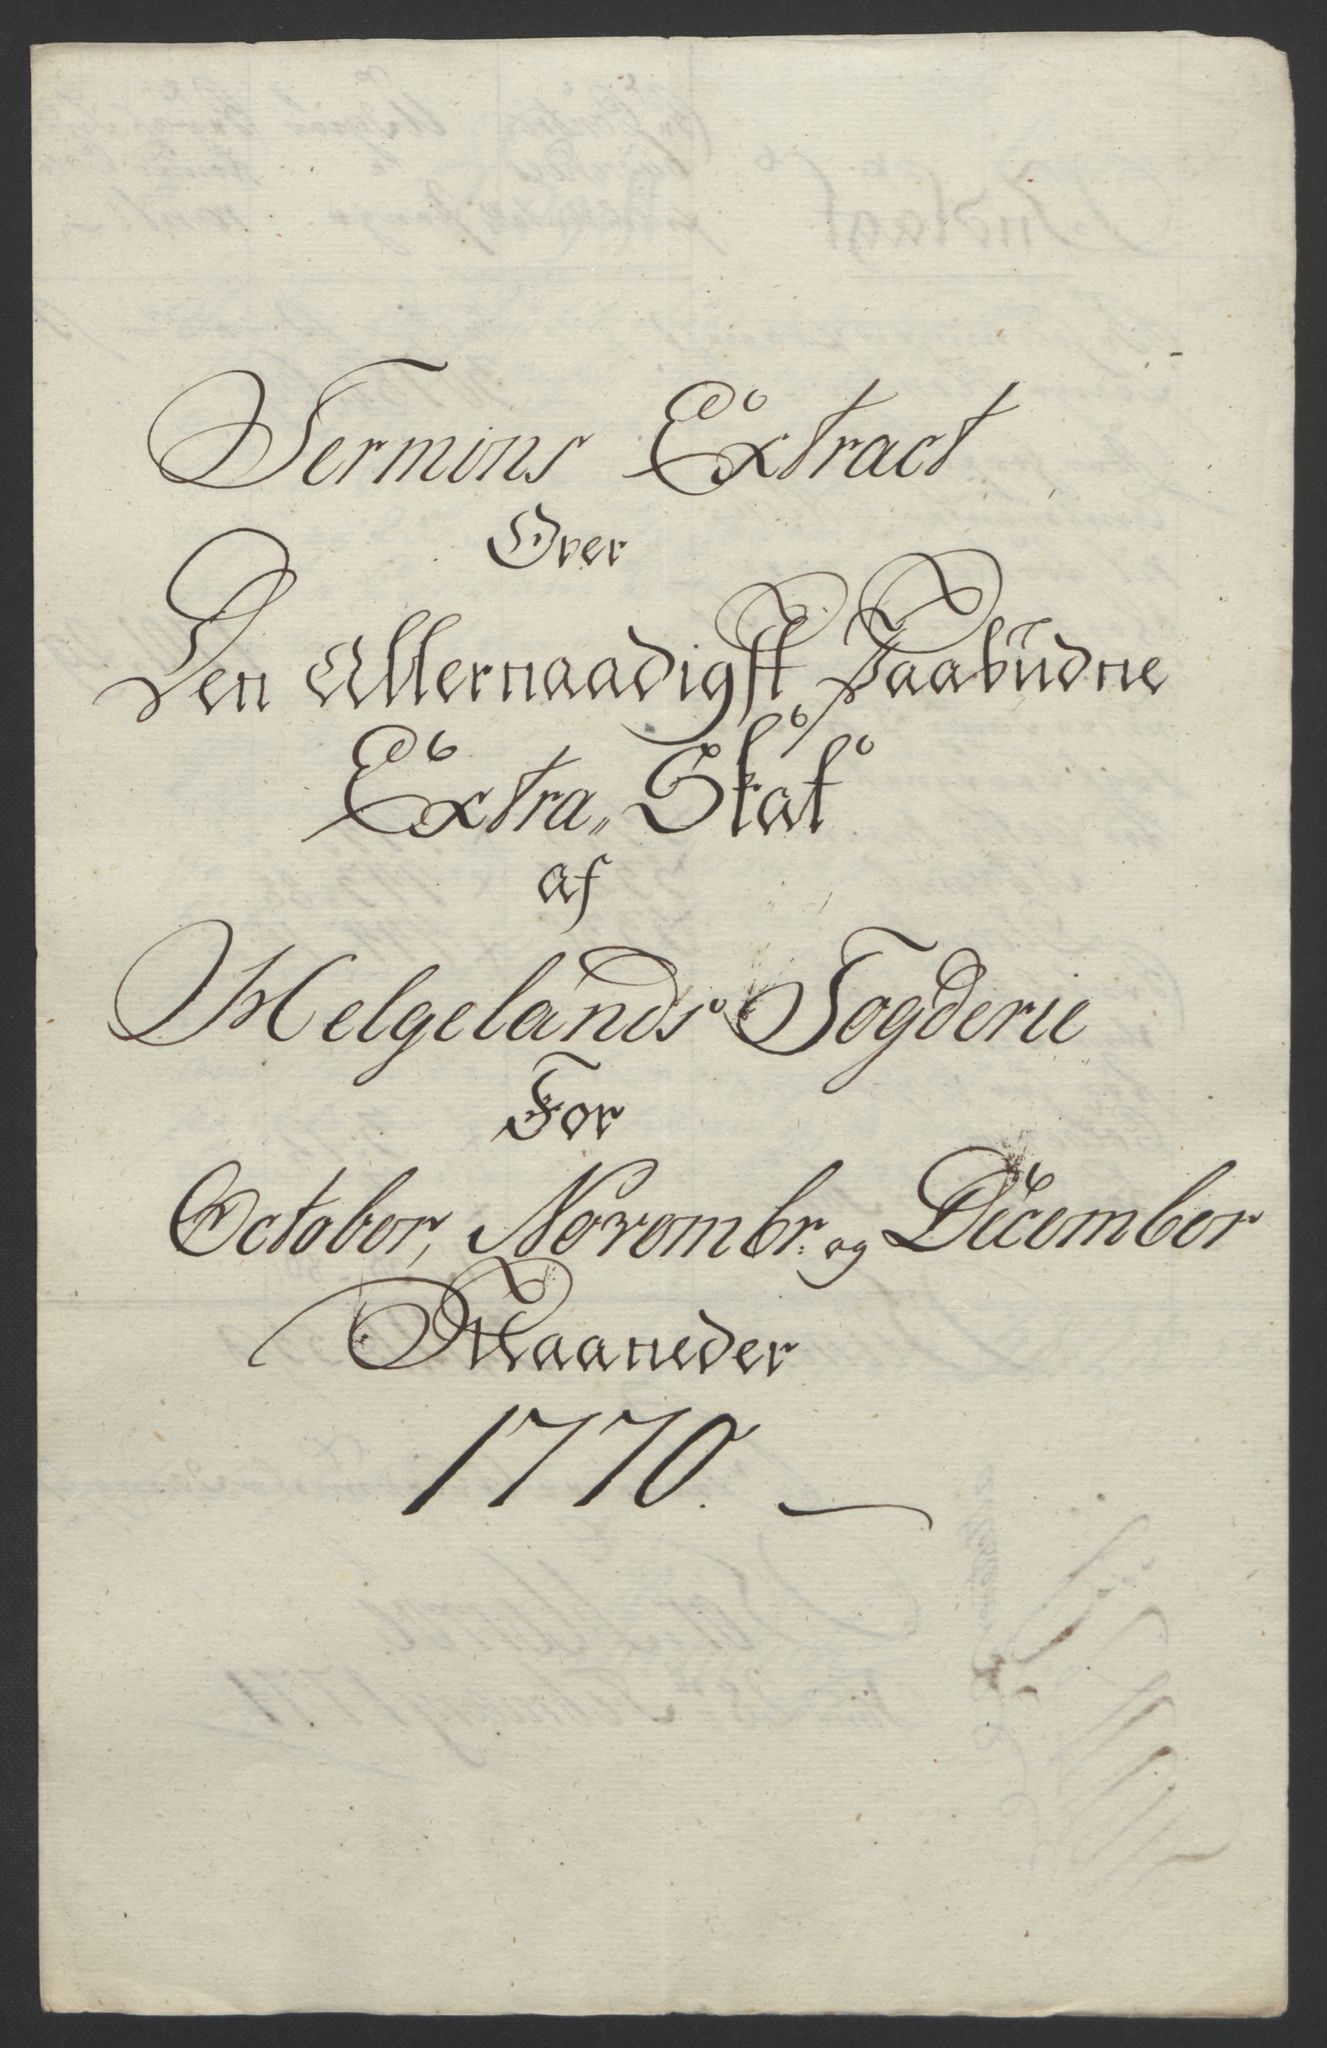 Termins Extract
Over
Den Allernaadigst Paabudne
Extra„ Skat
af
Helgelands Fogderie
For
October, Novembr: og December
Maaneder
1770.